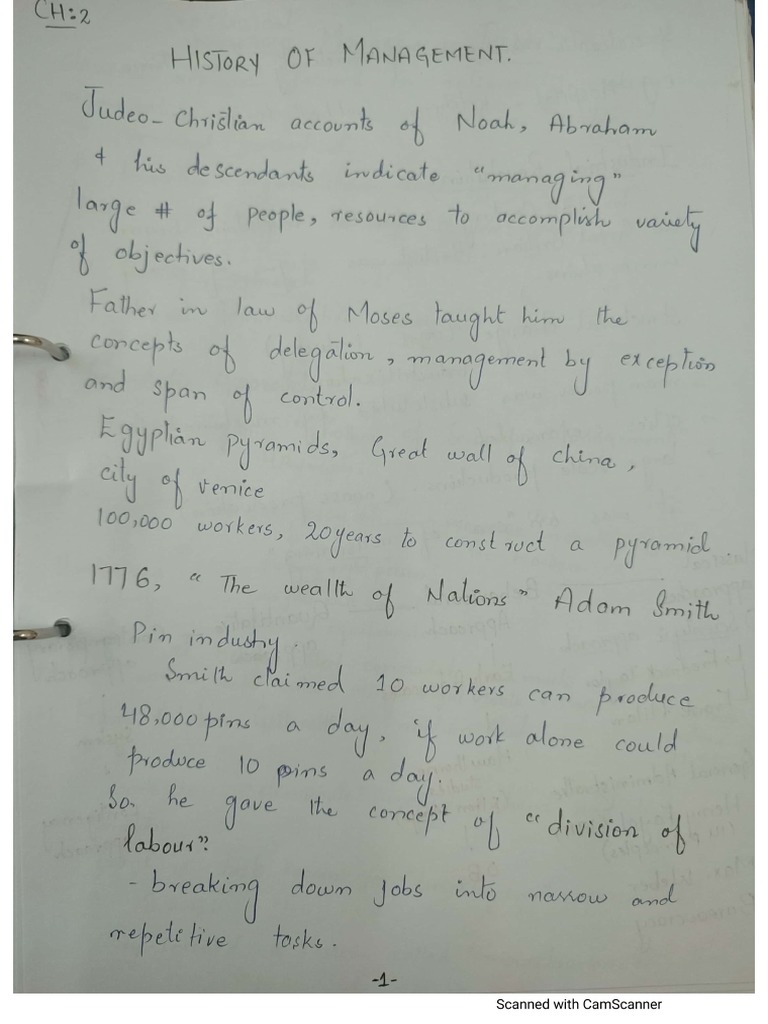 CH:2
HISTORY OF MANAGEMENT.
Judeo-Christian accounts of Noah, Abraham
& his descendants indicate "managing"
large # of people, resources to accomplish variety
of objectives.
Father in law of Moses taught him the
concepts of delegation, management by exception
and span of control.
Egyptian pyramids, Great wall of china,
city of venice
100,000 workers, 20 years to construct a pyramid.
1776, "The wealth of Nations" Adam Smith
Pin industry.
Smith claimed 10 workers can produce
48,000 pins a day, if work alone could
produce 10 pins a day.
So, he gave the concept of "division of
labour"
- breaking down jobs into narrow and
repetitive tasks.
-1-
Scanned with CamScanner